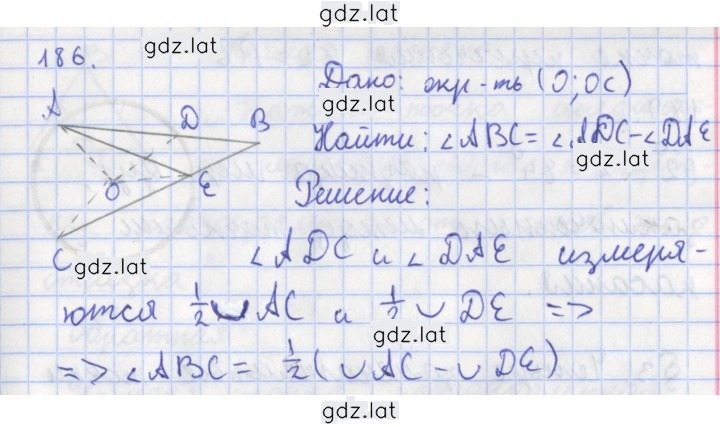 gdz.lat
186.
gdz.lat
Дано: окр-ть (O; OC)
gdz.lat
A
D
B
Найти: ∠ABC = ∠ADC - ∠DAE
gdz.lat
O
E
Решение:
C
gdz.lat
∠ADC и ∠DAE измеря-
ются 1/2 ∪ AC и 1/2 ∪ DE =>
gdz.lat
=> ∠ABC = 1/2 (∪AC - ∪DE)
gdz.lat